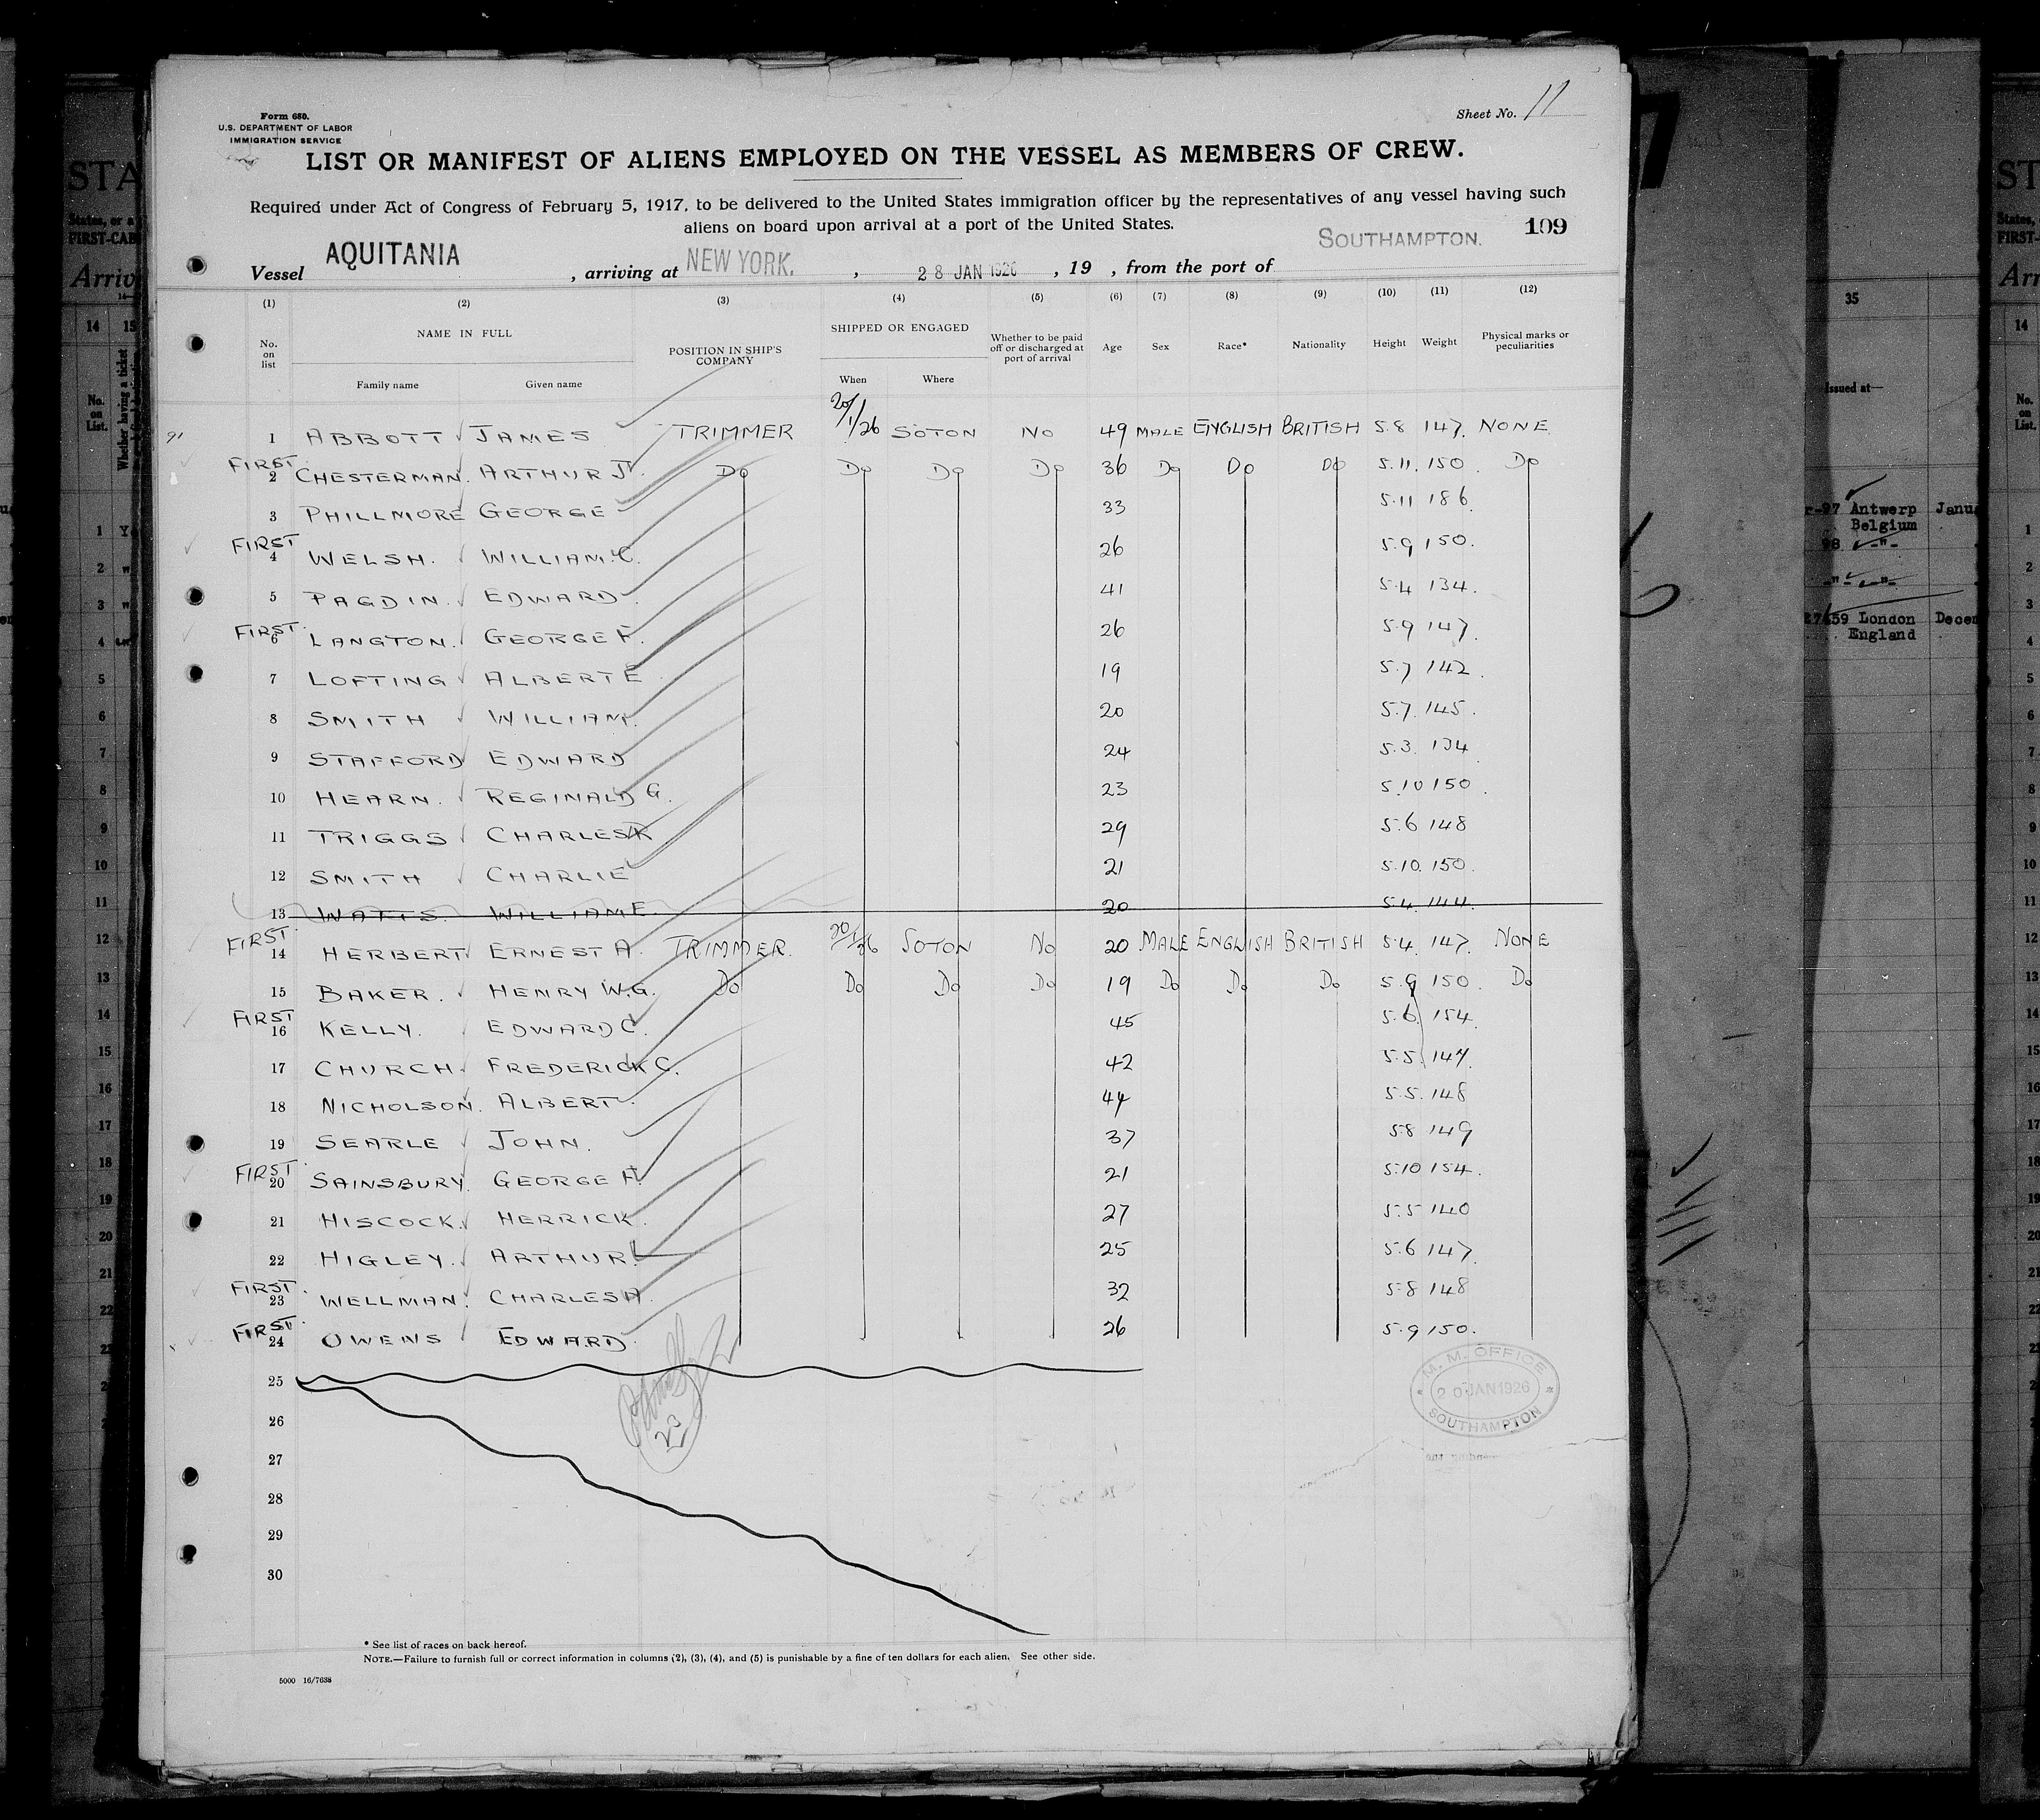 Form 680.
U.S. DEPARTMENT OF LABOR
IMMIGRATION SERVICE
Sheet No. 11
LIST OR MANIFEST OF ALIENS EMPLOYED ON THE VESSEL AS MEMBERS OF CREW.
Required under Act of Congress of February 5, 1917, to be delivered to the United States immigration officer by the representatives of any vessel having such
aliens on board upon arrival at a port of the United States.
109
Vessel AQUITANIA , arriving at NEW YORK. , 28 JAN 1926 , 19 , from the port of SOUTHAMPTON.
(1) (2) (3) (4) (5) (6) (7) (8) (9) (10) (11) (12)
No. on list NAME IN FULL POSITION IN SHIP'S COMPANY SHIPPED OR ENGAGED Whether to be paid off or discharged at port of arrival Age Sex Race* Nationality Height Weight Physical marks or peculiarities
Family name Given name When Where
91 1 ABBOTT JAMES TRIMMER 20/1/26 SOTON NO 49 MALE ENGLISH BRITISH 5.8 147. NONE
FIRST 2 CHESTERMAN. ARTHUR J. Do Do Do Do 36 Do Do Do 5.11. 150. Do
3 PHILLMORE GEORGE 33 5.11 186
FIRST 4 WELSH. WILLIAM.C. 26 5.9 150.
5 PAGDIN. EDWARD. 41 5.4 134.
FIRST 6 LANGTON. GEORGE F. 26 5.9 147.
7 LOFTING ALBERT E 19 5.7 142.
8 SMITH WILLIAM. 20 5.7. 145.
9 STAFFORD EDWARD 24 5.3. 134
10 HEARN. REGINALD G. 23 5.10 150.
11 TRIGGS CHARLES R 29 5.6 148
12 SMITH CHARLIE 21 5.10. 150.
13 WATTS. WILLIAM E. 20 5.4. 144.
FIRST 14 HERBERT ERNEST A. TRIMMER. 20/1/26 SOTON NO 20 MALE ENGLISH BRITISH 5.4. 147. NONE
15 BAKER. HENRY W.G. Do Do Do Do 19 Do Do Do 5.9 150. Do
FIRST 16 KELLY. EDWARD C. 45 5.6. 154.
17 CHURCH. FREDERICK C. 42 5.5. 147.
18 NICHOLSON. ALBERT. 44 5.5. 148
19 SEARLE JOHN. 37 5.8 149
FIRST 20 SAINSBURY. GEORGE F. 21 5.10 154.
21 HISCOCK. HERRICK. 27 5.5 140
22 HIGLEY. ARTHUR. 25 5.6 147.
FIRST. 23 WELLMAN. CHARLES A. 32 5.8 148
FIRST. 24 OWENS EDWARD. 26 5.9 150.
25
26
27
28
29
30
23
M. M. OFFICE
20 JAN 1926
SOUTHAMPTON
* See list of races on back hereof.
NOTE.—Failure to furnish full or correct information in columns (2), (3), (4), and (5) is punishable by a fine of ten dollars for each alien. See other side.
5000 16/7638
STA
States, or a
FIRST-CAB
Arriv
14 15
No. on List.
Whether having a ticket
35
Issued at—
Antwerp Janu
Belgium
London Decem
England
ST
States,
FIRST-
Arr
14
No. on List.